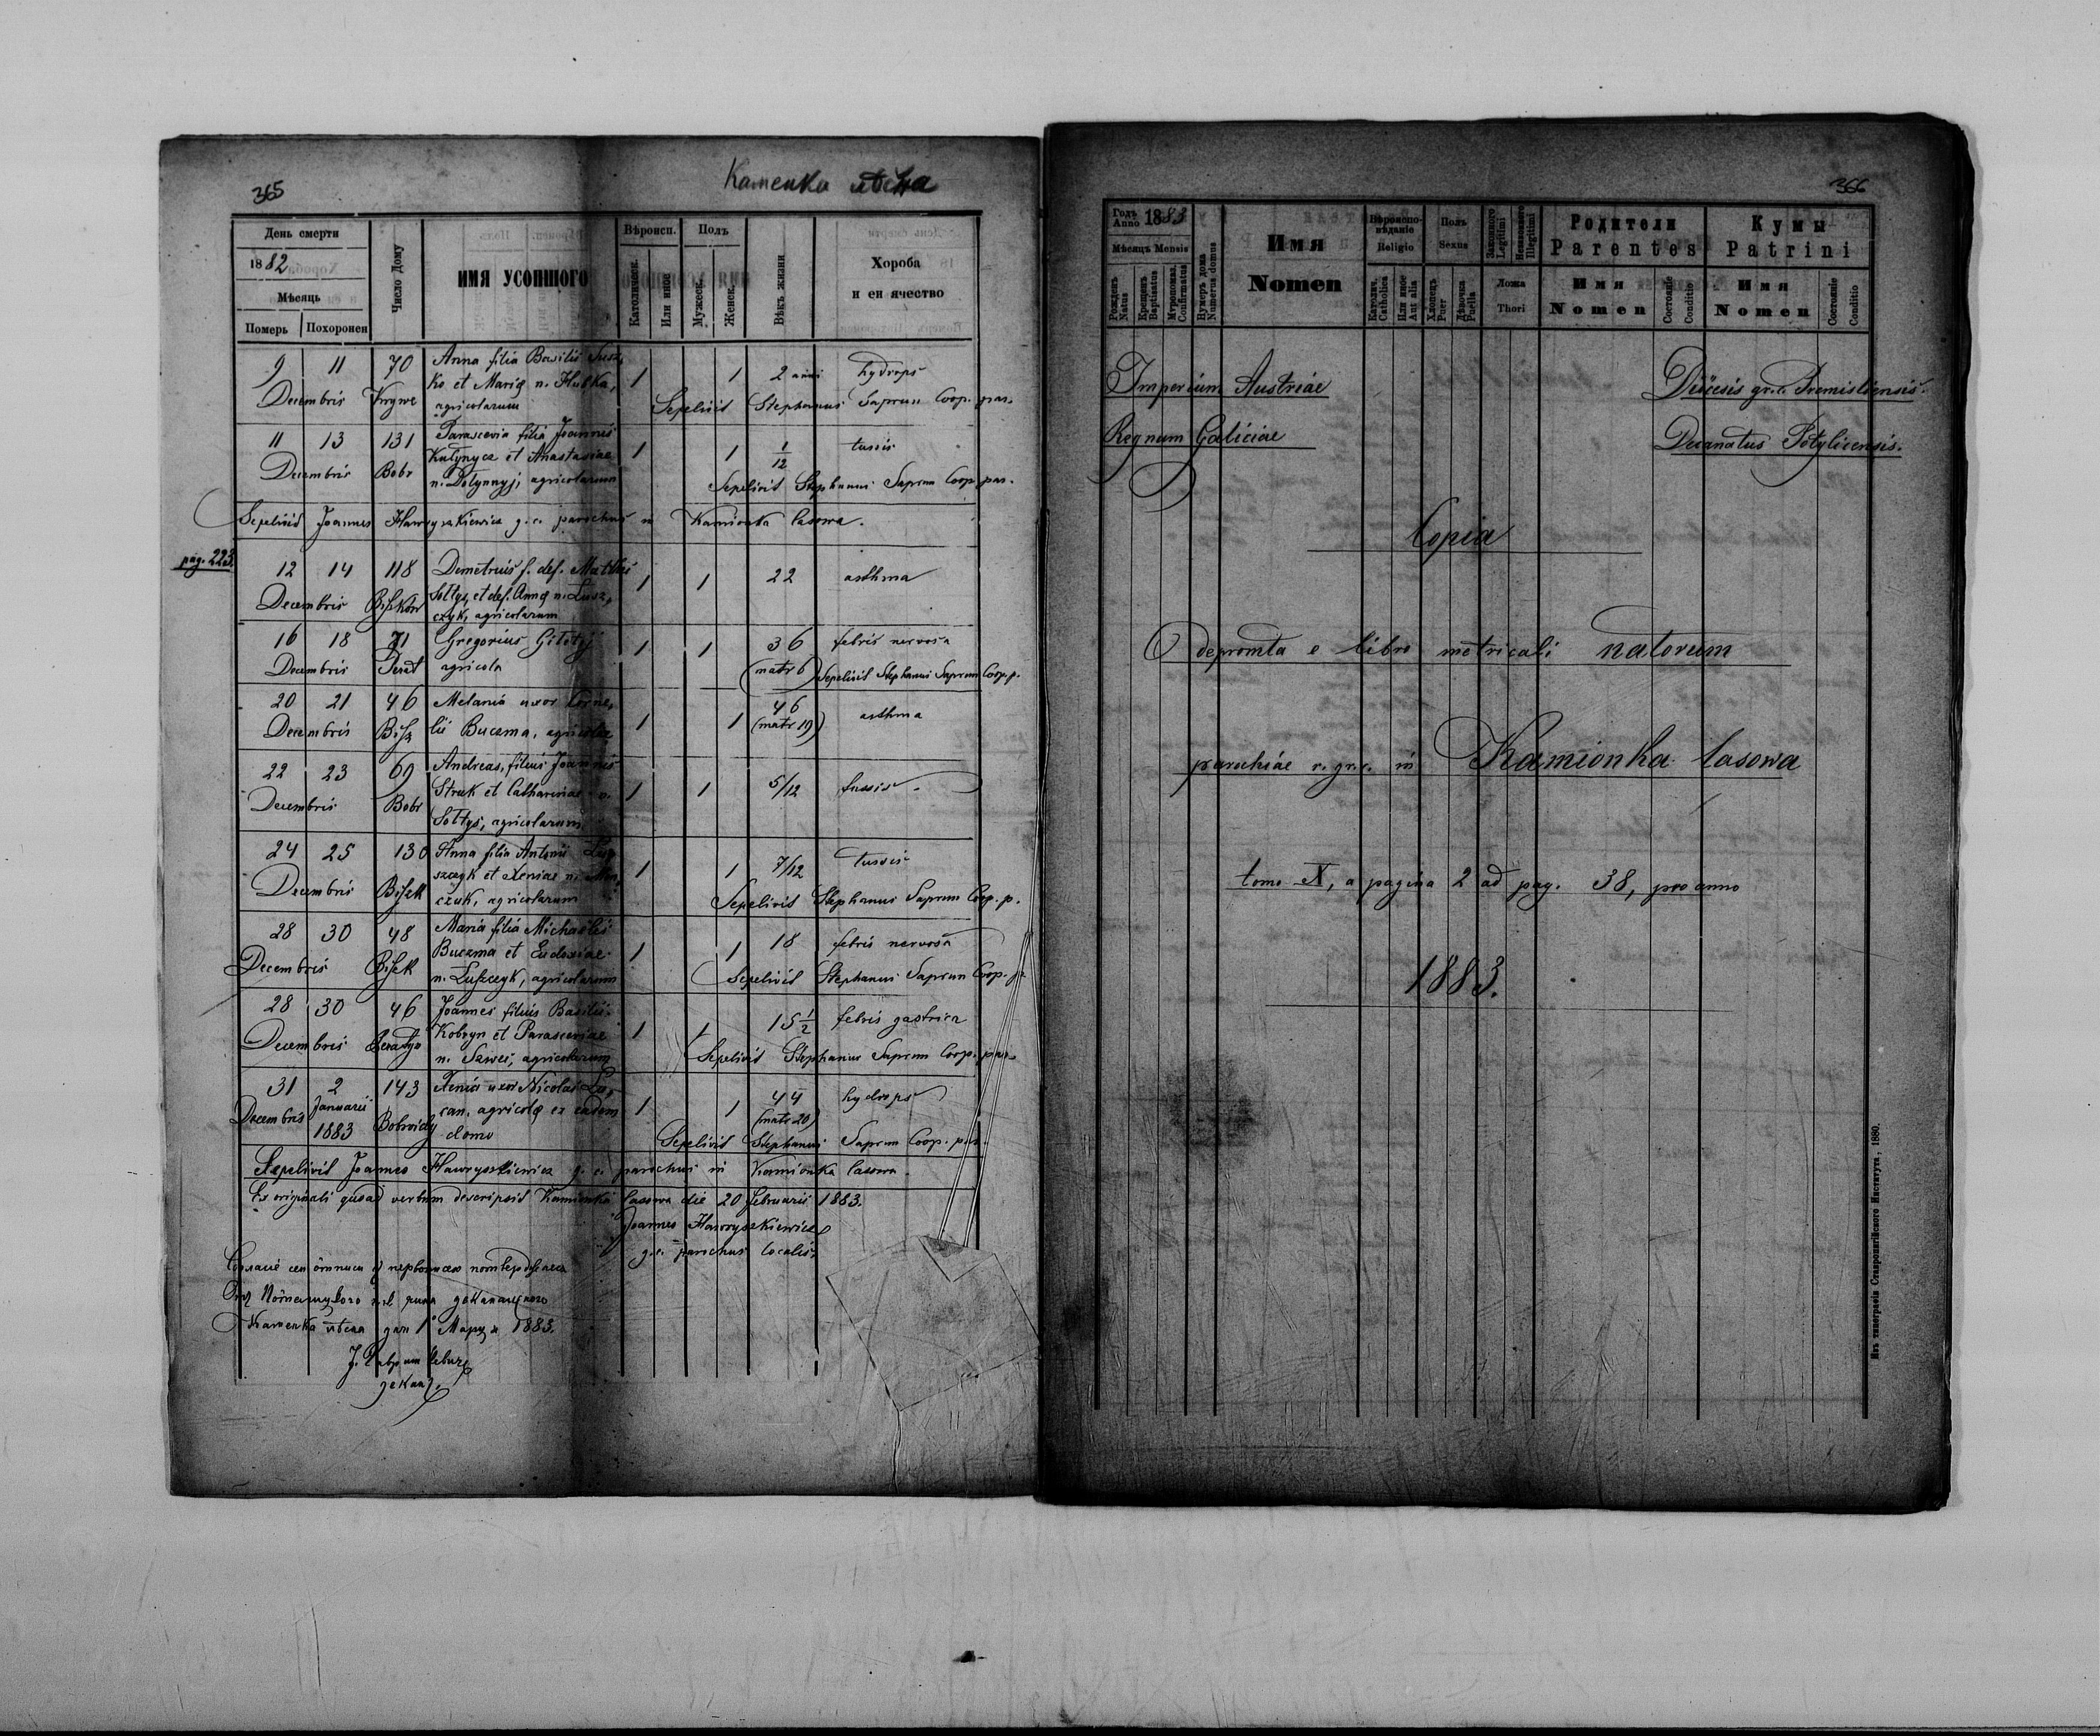 365
Каменка лѣсна
День смерти
1882
Мѣсяць
Померъ
Похоронен
Число Дому
ИМЯ УСОПШОГО
Вѣроисп.
Католическ.
Или иное
Полъ
Мужеск.
Женск.
Вѣкъ жизни
Хороба
и еи ячество
9 11 70 Anna filia Basilii Susz,
ko et Mariæ n. Hubka, 1 1 2 anni hydrops
Decembris agricolarum Sepelivit Stephanus Saprun Coop. par.
11 13 131 Parascevia filia Joannis
Kulynycz et Anastasiae 1 1 1/12 tussis
Decembris Bobr n. Dolynnyj, agricolarum
Sepelivit Stephanus Saprun Coop. par.
Sepelivit Joannes Hawryszkiewicz g. c. parochus in Kamionka lasowa.
pag. 223.
12 14 118 Demetrius f. def. Matthei
Decembris Biszków Sołtys, et def. Annæ n. Łusz, 1 1 22 asthma
czyk, agricolarum
16 18 71 Gregorius 1 1 36 febris nervosa
Decembris agricola (matr 6) Sepelivit Stephanus Saprun Coop. p.
20 21 46 Melania uxor Corne, 46
Decembris Bisz lii Buczma, agricolæ 1 1 (matr 19) asthma
22 23 69 Andreas, filius Joannis
Decembris Bobr Struk et Catharinae n. 1 1 5/12 tussis
Sołtys, agricolarum
24 25 130 Anna filia Antonii
szczyk et Xeniae n. 1 1 7/12 tussis
Decembris Biszk czuk, agricolarum Sepelivit Stephanus Saprun Coop. p.
28 30 48 Maria filia Michaelis
Buczma et Eudoxiae 1 1 18 febris nervosa
Decembris Biszk n. Łuszczyk, agricolarum Sepelivit Stephanus Saprun Coop. p.
28 30 46 Joannes filius Basilii
Kobryn et Parasceviae 1 1 15 1/2 febris gastrica
Decembris n. Sawei, agricolarum Sepelivit Stephanus Saprun Coop. par.
31 2 143 Xenia uxor Nicolai
Decembris Januarii can, agricolæ ex eadem 1 1 44 hydrops
1883 Bobroidy domo (matr 20)
Sepelivit Stephanus Saprun Coop. par.
Sepelivit Joannes Hawryszkiewicz g. c. parochus in Kamionka lasowa.
Ex originali quoad verbum descripsit Kamionka lasowa die 20 februarii 1883.
Joannes Hawryszkiewicz
g. c. parochus localis.
Каменка лѣсна дня 1 Марца 1883.
декан.
366
Годъ Anno 1883
Мѣсяцъ Mensis
Рожденъ Natus
Крещенъ Baptisatus
Мѵропомаз. Confirmatus
Нумеръ дома Numerus domus
Имя
Nomen
Вѣроисповѣданіе
Religio
Католич. Catholica
Или иное Aut alia
Полъ
Sexus
Хлопецъ Puer
Дѣвочка Puella
Законного Legitimi
Незаконного Illegitimi
Ложа
Thori
Родители
Parentes
Имя
Nomen
Состояніе
Conditio
Кумы
Patrini
Имя
Nomen
Состояніе
Conditio
Imperium Austriae
Dioecesis gr. c. Premisliensis.
Regnum Galiciae
Decanatus Potylicensis.
Copia
depromta e libro metricali natorum
parochiae r. gr. c. in Kamionka lasowa
tomo X, a pagina 2 ad pag. 38, pro anno
1883.
Изъ типографіи Ставропигійского Института, 1880.